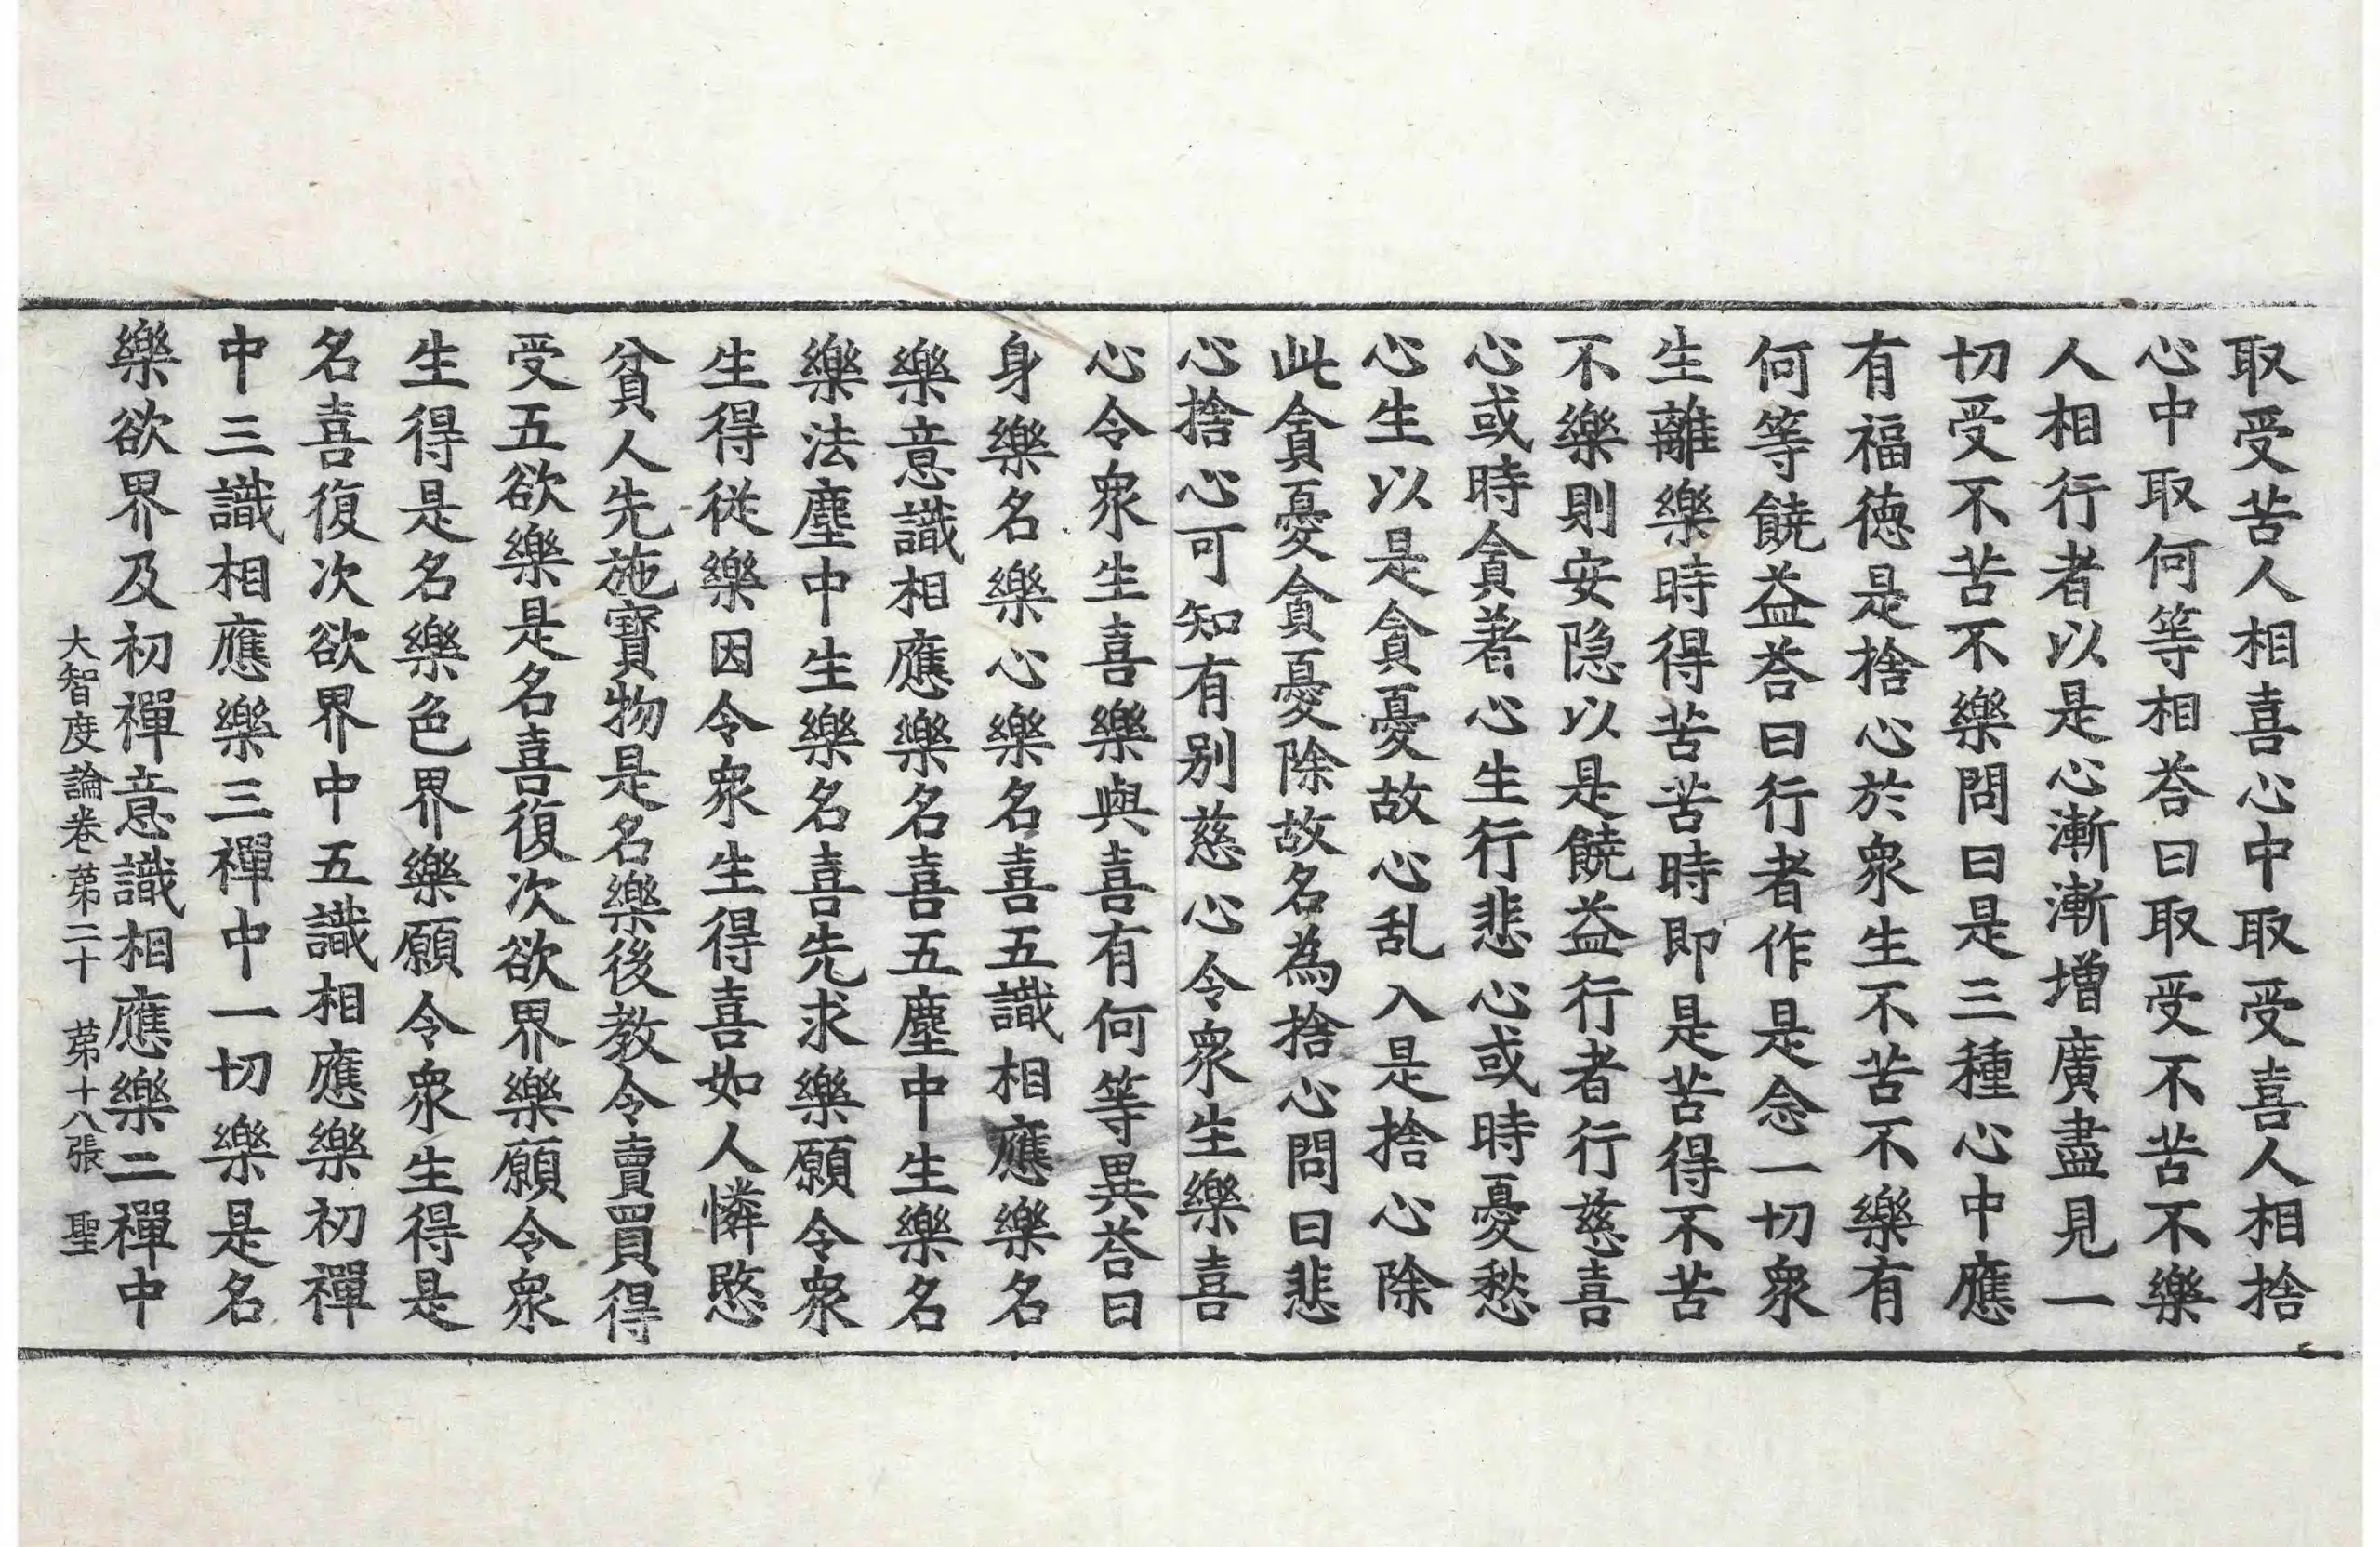 取受苦人相喜心中取受喜人相捨
心中取何等相荅曰取受不苦不樂
人相行者以是心漸漸增廣盡見一
切受不苦不樂問曰是三種心中應
有福徳是捨心於衆生不苦不樂有
何等饒益荅曰行者作是念一切衆
生離樂時得苦苦時即是苦得不苦
不樂則安隐以是饒益行者行慈喜
心或時貪著心生行悲心或時憂愁
心生以是貪憂故心乱入是捨心除
此貪憂貪憂除故名為捨心問曰悲
心捨心可知有别慈心令衆生樂喜
心令衆生喜樂與喜有何等異荅曰
身樂名樂心樂名喜五識相應樂名
樂意識相應樂名喜五塵中生樂名
樂法塵中生樂名喜先求樂願令衆
生得従樂因令衆生得喜如人憐愍
貧人先施寶物是名樂後教令賣買得
受五欲樂是名喜復次欲界樂願令衆
生得是名樂色界樂願令衆生得是
名喜復次欲界中五識相應樂初禪
中三識相應樂三禪中一切樂是名
樂欲界及初禪意識相應樂二禪中
大智度論卷苐二十 苐十八張 聖